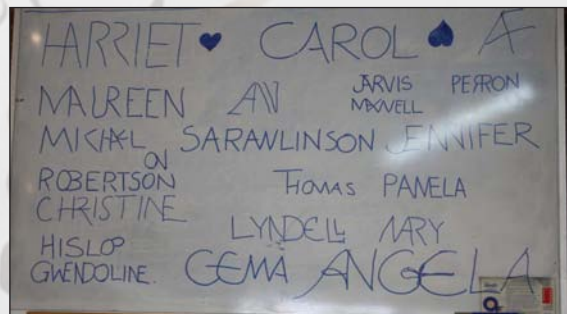 HARRIET ♥ CAROL ♠ Æ
MAUREEN ANN JARVIS PERRON
MAXWELL
MICHÆL SARAWLINSON JENNIFER
ON
ROBERTSON THOMAS PAMELA
CHRISTINE
LYNDELL MARY
HISLOP
GWENDOLINE. GEMA ANGELA